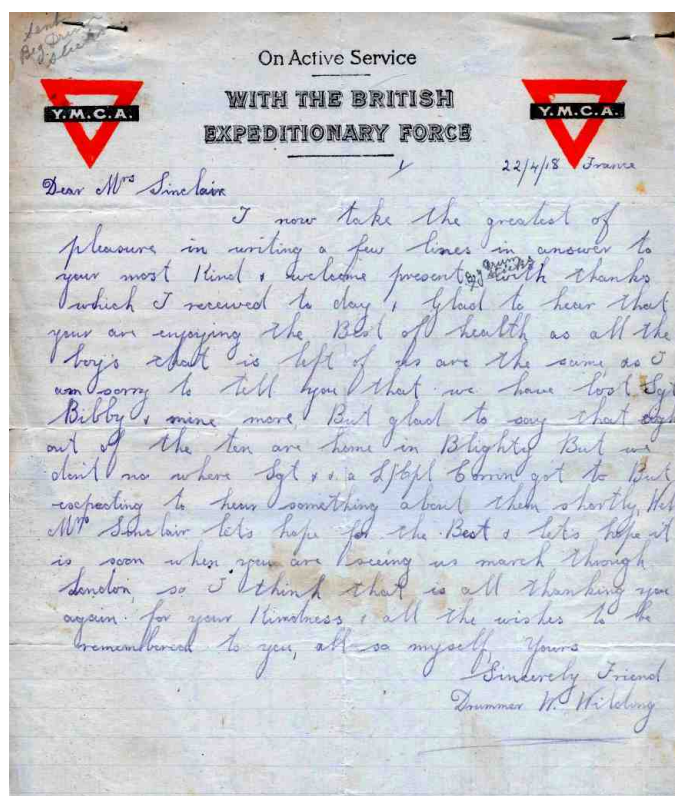 Sent
Big Drum
Sticks
On Active Service
WITH THE BRITISH
EXPEDITIONARY FORCE
Y.M.C.A.
Y.M.C.A.
22/4/18 France
Dear Mrs Sinclair
I now take the greatest of
pleasure in writing a few lines in answer to
your most Kind & welcome present Big Drum Sticks with thanks
which I received to day & Glad to hear that
your are enjoying the Best of health as all the
boys that is left of us are the same, as I
am sorry to tell you that we have lost Sgt
Bibby & mine more, But glad to say that eigh
out of the ten are home in Blighty But we
dont no where Sgt & a L/Cpl got to But
expecting to hear something about them shortly, Wel
Mrs Sinclair lets hope for the Best & lets hope it
is soon when you are seeing us march through
London, so I think that is all thanking you
again for your Kindness & all the wishes to be
remembered to you, all so myself, Yours
Sincerely Friend
Drummer W. Wilding